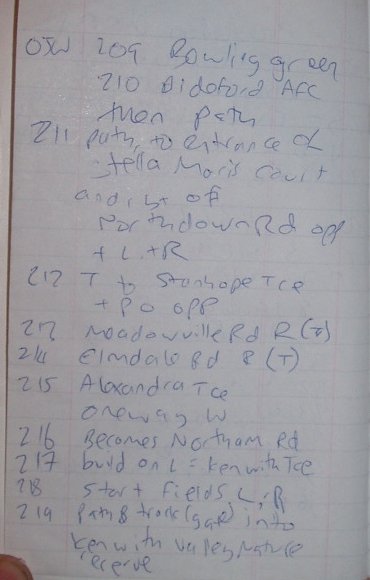 OSW 209 Bowling green
210 Bideford AFC
then path
211 path to entrance of
Stella Maris Court
and of
Northdown Rd opp
+ L + R
212 T to Stanhope Tce
+ PO opp
212 Meadowville Rd R (T)
214 Elmdale Rd R (T)
215 Alexandra Tce
oneway W
216 Becomes Northam Rd
217 build on L = Kenwith Tce
218 Start Fields L, R
219 Path & track (gate) into
Kenwith Valley Nature